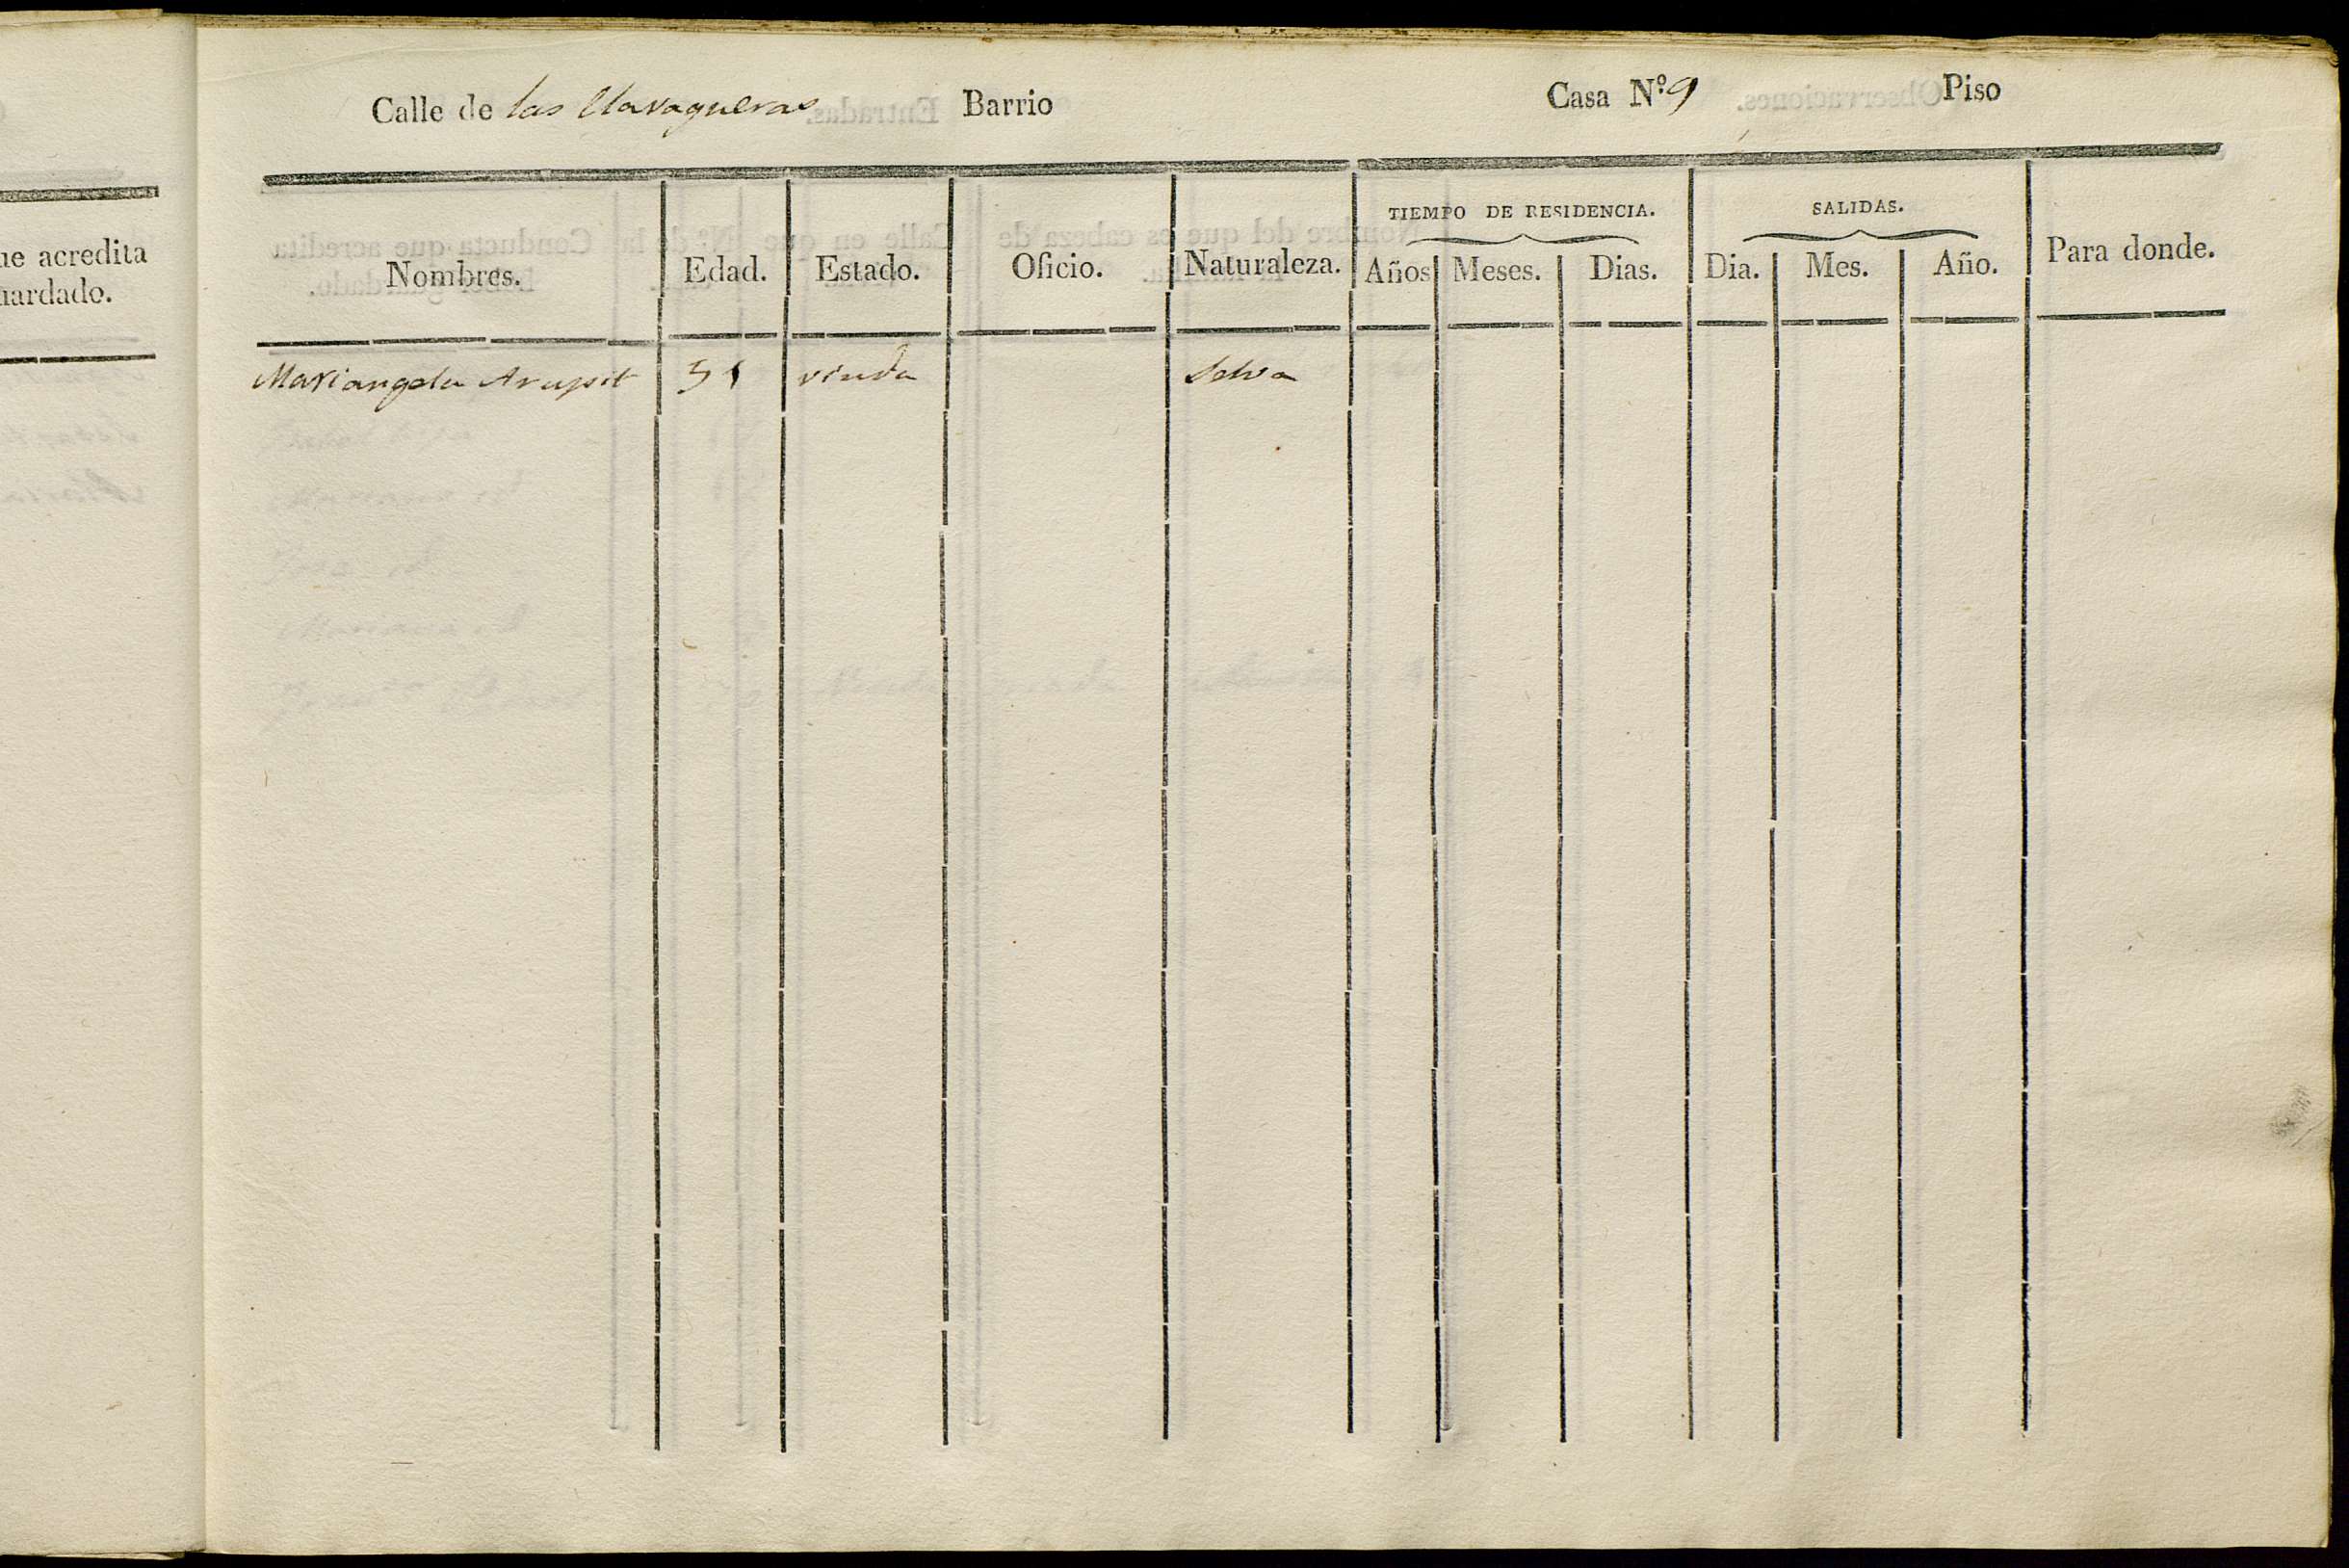 ue acredita
uardado.
Calle de las Clavagueras Barrio Casa N.º 9 Piso
TIEMPO DE RESIDENCIA. SALIDAS.
Nombres. Edad. Estado. Oficio. Naturaleza. Años Meses. Dias. Dia. Mes. Año. Para donde.
Mariangela Arupit 51 viuda Selva